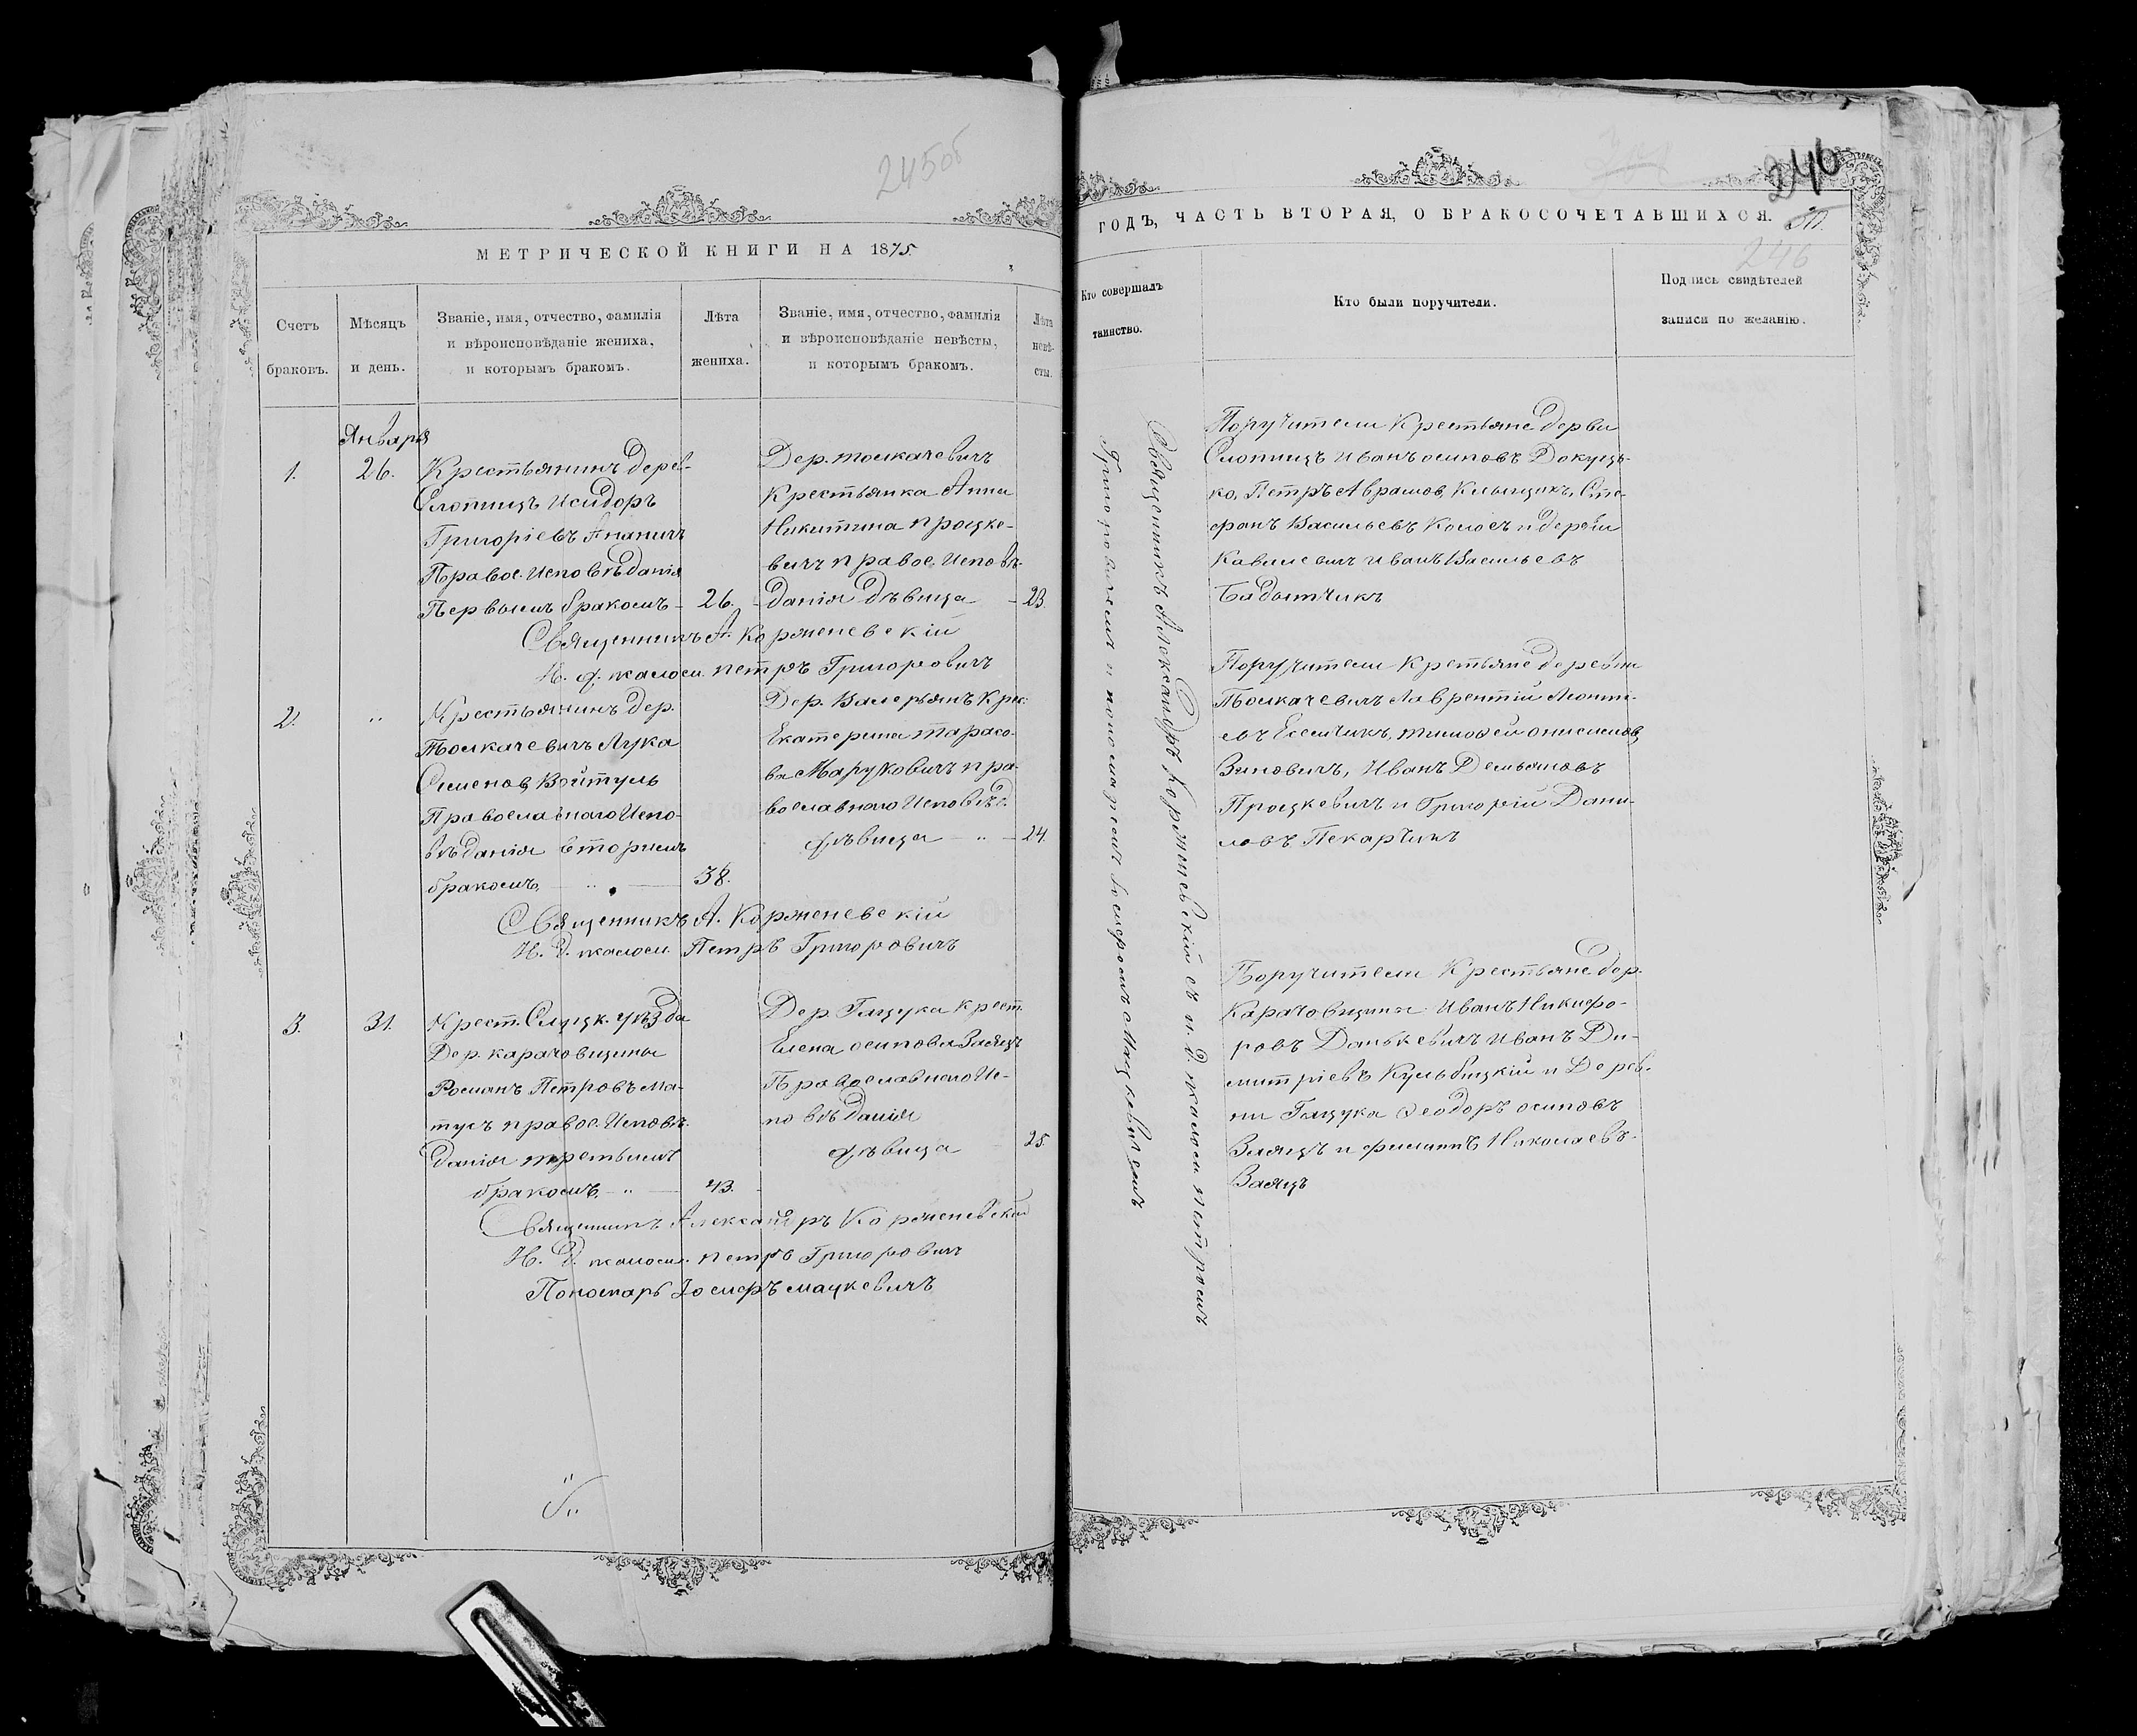 245об
МЕТРИЧЕСКОЙ КНИГИ НА 1875.
Счетъ
браковъ.
Мѣсяцъ
и день.
Званіе, имя, отчество, фамилія
и вѣроисповѣданіе жениха,
и которымъ бракомъ.
Лѣта
жениха.
Званіе, имя, отчество, фамилія
и вѣроисповѣданіе невѣсты,
и которымъ бракомъ.
Лѣта
невѣ-
сты.
Января
1.
26.
Крестьянинъ дерев-
Слопищъ Исидоръ
Григоріевъ Ананичъ
Правос. Исповѣданія
Первымъ бракомъ
26.
Дер. Толкачевичъ
Крестьянка Анна
Никитина Процке-
вичъ правос. Исповѣ-
данія дѣвица
23.
Священникъ А. Корженевскій
И. д. псалом. Петръ Григоровичъ
2.
"
Крестьянинъ дер.
Толкачевичъ Лука
Семеновъ Войтуль
Православнаго Испо-
вѣданія вторымъ
бракомъ, "
38.
Дер. Валерьянъ Крес.
Екатерина Тарасо-
ва Марукович пра-
вославнаго Исповѣд.
дѣвица "
24.
Священникъ А. Корженевскій
И. д. псалом. Петръ Григоровичъ
3.
31.
Крест. Слуцк. уѣзда
Дер. Карачовщины
Романъ Петровъ Ма-
тусъ правос. Исповѣ-
данія третьимъ
бракомъ, "
43.
Дер. Гацука Крест.
Елена Осипова Заяцъ
Православнаго Ис-
повѣданія
дѣвица
25.
Священникъ Александръ Корженевскій
И. д. псалом. Петръ Григоровичъ
Пономарь Іосифъ Мацкевичъ
240
246
ГОДЪ, ЧАСТЬ ВТОРАЯ, О БРАКОСОЧЕТАВШИХСЯ.
Кто совершалъ
таинство.
Кто были поручители.
Подпись свидѣтелей
записи по желанію.
Священникъ Александръ Корженевскій съ и. д. псалом. Петромъ
Григоровичемъ и пономаремъ Іосифомъ Мацкевичемъ
Поручители Крестьяне дерев
Слопищъ Иванъ Осиповъ Докуць-
ко, Петръ Аврамов, Сте-
фанъ Васильевъ Колосъ и дерев
Иванъ Васильевъ
Поручители Крестьяне деревни
Толкачевичъ Лаврентій
Тимофей Онисимов
Зиновичъ, Иванъ Демьяновъ
Процкевичъ и Григорій Дани-
ловъ Пекарчикъ
Поручители Крестьяне дер.
Карачовщины Иванъ Никифо-
ровъ Данькевичъ Иванъ Ди-
митріевъ Кульбицкій и Дерев-
ни Гацука Ѳеодоръ Осиповъ
Заяцъ и Филиппъ Николаевъ
Заяцъ